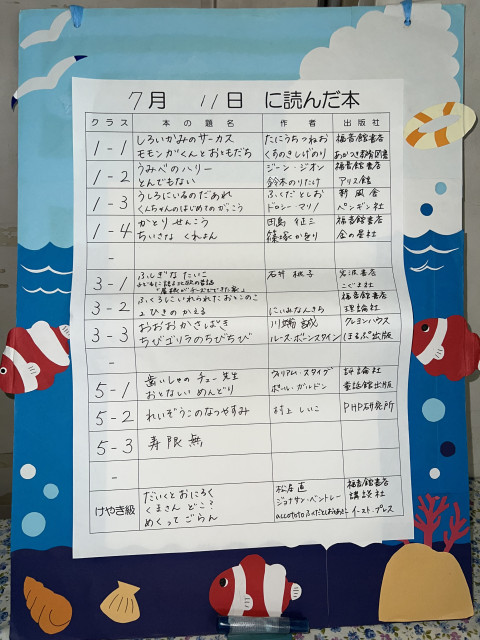 7月 11日 に読んだ本
クラス 本の題名 作者 出版社
1-1 しろいかみのサーカス たにうちつねお 福音館書店
モモンガくんとおともだち くすのきしげのり あかつき教育図書
1-2 うみべのハリー ジーン・ジオン 福音館書店
とんでもない 鈴木のりたけ アリス館
1-3 うしろにいるのだあれ ふくだとしお 新風舎
くんちゃんのはじめてのがっこう ドロシー マリノ ペンギン社
1-4 かとりせんこう 田島征三 福音館書店
ちいさな くれよん 篠塚かをり 金の星社
-
3-1 ふしぎな たいこ 石井桃子 岩波書店
子どもに語る北欧の昔話 こぐま社
「屋根がチーズでできた家」
3-2 ふくろにいれられたおとこのこ 福音館書店
ひきのかえる にいみなんきち 理論社
3-3 おおおかさばき 川端誠 クレヨンハウス
ちびゴリラのちびちび ルース・ボーンスタイン ほるぷ出版
-
5-1 歯いしゃのチュー先生 ウィリアム・スタイグ 評論社
おとないめんどり ポール・ガルドン 童話館出版
5-2 れいぞうこのなつやすみ 村上しいこ PHP研究所
5-3 寿限無
-
けやき級 だいくとおにろく 松居直 福音館書店
くまさん どこ? ジョナサン・ベントレー 講談社
めくってごらん accototoふくだとしおあきこ イースト・プレス